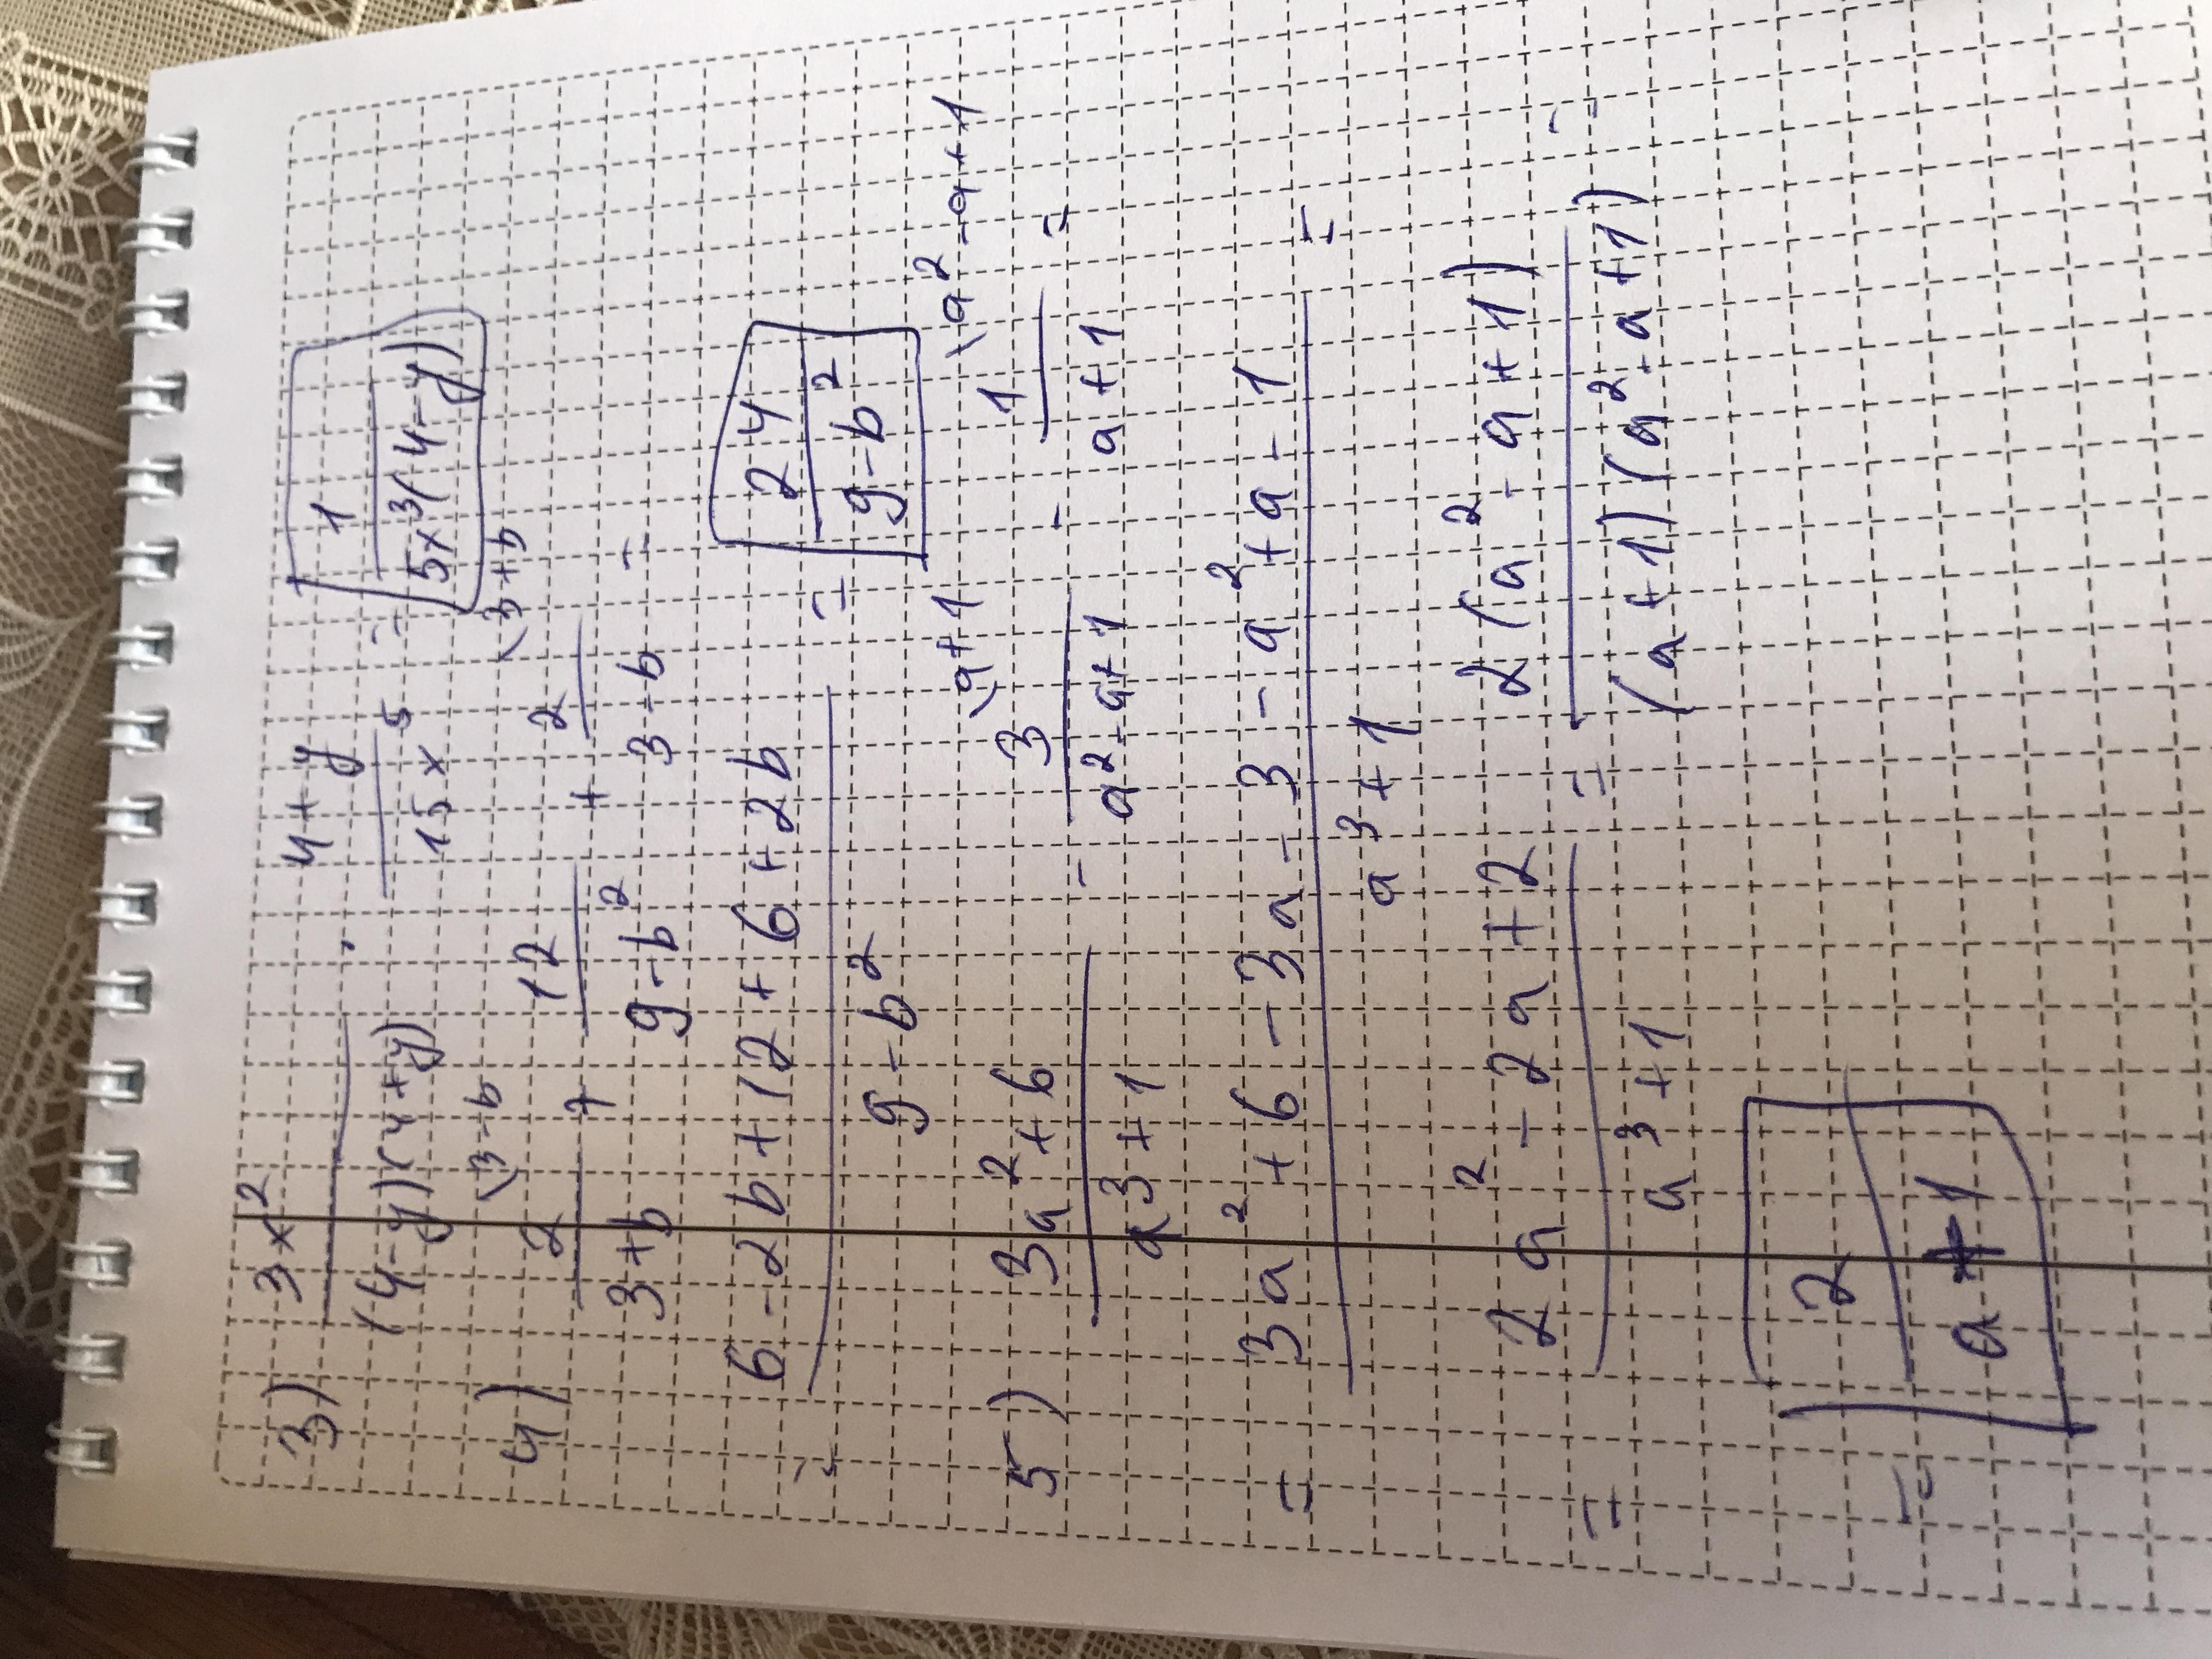 3) 3x² / (4-y)(4+y) · 4+y / 15x⁵ = 1 / 5x³(4-y)
4) 2 \3-b / 3+b + 12 / 9-b² + 2 \3+b / 3-b =
= 6-2b+12+6+2b / 9-b² = 24 / 9-b²
5) 3a²+6 / a³+1 - 3 \a+1 / a²-a+1 - 1 \a²-a+1 / a+1 =
= 3a²+6-3a-3-a²+a-1 / a³+1 =
= 2a²-2a+2 / a³+1 = 2(a²-a+1) / (a+1)(a²-a+1) =
= 2 / a+1